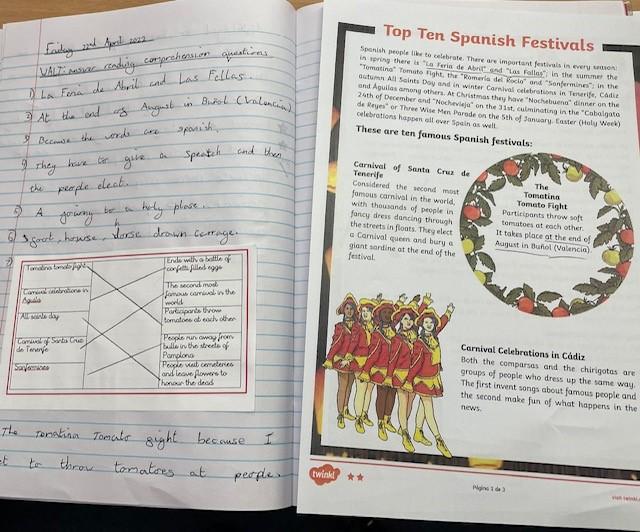 Friday 22nd April 2022
WALT: answer reading comprehension questions
1) La Feria de Abril and Las Fallas.
2) At the end of August in Buñol (Valencia)
3) Because the words are spanish.
4) They have to give a speatch and then
the people elect.
5) A journy to a holy plase.
6) foot, house, horse drawn carrage.
7)
Tomatina tomato fight
Carnival celebrations in
Aguila
All saints day
Carnival of Santa Cruz
de Tenerife
Sanfermines
Ends with a battle of
confetti filled eggs
The second most
famous carnival in the
world
Participants throw
tomatoes at each other
People run away from
bulls in the streets of
Pamplona
People visit cemeteries
and leave flowers to
honour the dead
The Tomatina Tomato fight because I
to throw tomatoes at people.
Top Ten Spanish Festivals
Spanish people like to celebrate. There are important festivals in every season:
in spring there is "La Feria de Abril" and "Las Fallas"; in the summer the
"Tomatina" Tomato Fight, the "Romería del Rocío" and "Sanfermines"; in the
autumn All Saints Day and in winter Carnival celebrations in Tenerife, Cádiz
and Águilas among others. At Christmas they have "Nochebuena" dinner on the
24th of December and "Nochevieja" on the 31st, culminating in the "Cabalgata
de Reyes" or Three Wise Men Parade on the 5th of January. Easter (Holy Week)
celebrations happen all over Spain as well.
These are ten famous Spanish festivals:
Carnival of Santa Cruz de
Tenerife
Considered the second most
famous carnival in the world,
with thousands of people in
fancy dress dancing through
the streets in floats. They elect
a Carnival queen and bury a
giant sardine at the end of the
festival.
The
Tomatina
Tomato Fight
Participants throw soft
tomatoes at each other.
It takes place at the end of
August in Buñol (Valencia).
Carnival Celebrations in Cádiz
Both the comparsas and the chirigotas are
groups of people who dress up the same way.
The first invent songs about famous people and
the second make fun of what happens in the
news.
twinkl
Página 1 de 3
visit twinkl.